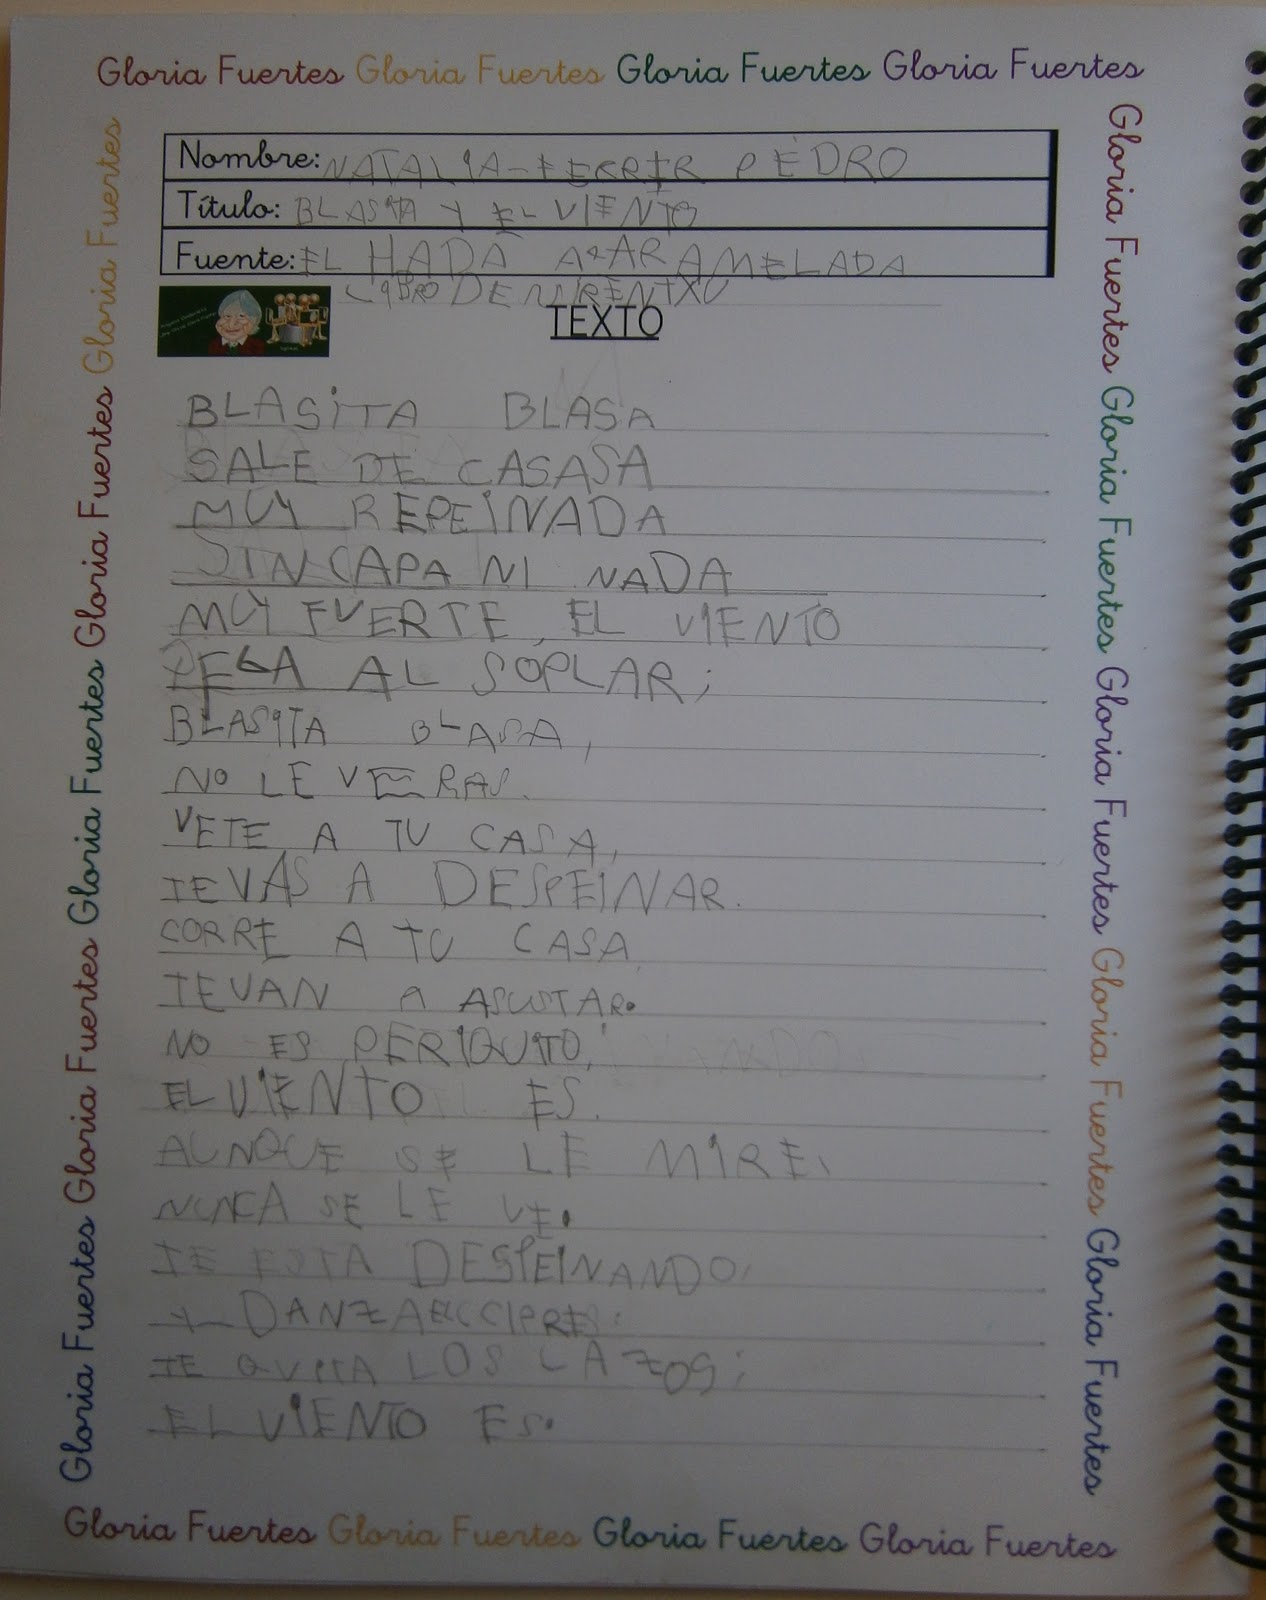 Gloria Fuertes Gloria Fuertes Gloria Fuertes Gloria Fuertes
Nombre: NATALIA-FERRER PEDRO
Título: BLASITA Y EL VIENTO
Fuente: EL HADA ACARAMELADA
TEXTO
BLASITA BLASA
SALE DE CASASA
MUY REPEINADA
SIN CAPA NI NADA
MUY FUERTE, EL VIENTO
PEGA AL SOPLAR;
BLASITA BLASA,
NO LE VERAS.
VETE A TU CASA,
TE VAS A DESPEINAR.
CORRE A TU CASA
TE VAN A ASUSTAR.
NO ES PERIQUITO,
EL VIENTO ES.
AUNQUE SE LE MIRE,
NUNCA SE LE VE.
TE ESTA DESPEINANDO,
Y DANZA EL CIPRES:
TE QUITA LOS LAZOS;
EL VIENTO ES.
Gloria Fuertes Gloria Fuertes Gloria Fuertes Gloria Fuertes
Gloria Fuertes Gloria Fuertes Gloria Fuertes Gloria Fuertes Gloria Fuertes
Gloria Fuertes Gloria Fuertes Gloria Fuertes Gloria Fuertes Gloria Fuertes